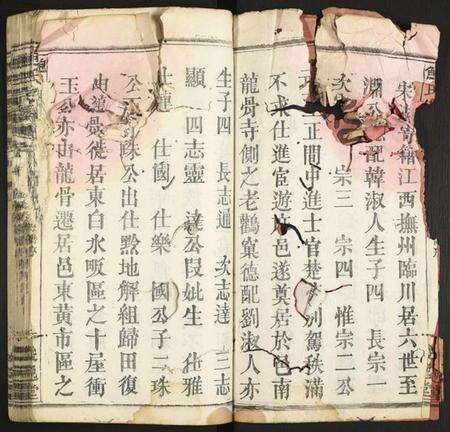 宋 籍江西撫州臨川居六世至
淵公 配韓淑人生子四 長宗一
次宗 宗三 宗四 惟宗二公
正間中進士官楚 別駕秩滿
不求仕進宦遊 邑遂奠居於邑南
龍骨寺側之老鸛窠德配劉淑人亦
生子四 長志通 次志達 三志
顯 四志靈 達公 妣生 仕雅
仕 仕國 仕樂 國公子二珠
珠公出仕黔地解組歸田復
由 徙居東白水畈區之十屋衝
玉 亦由龍骨遷居邑東黃市區之